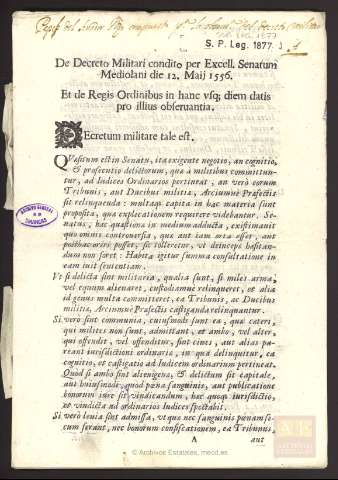 S. P. Leg. 1877
De Decreto Militari condito per Excell. Senatum
Mediolani die 12. Maij 1556.
Et de Regis Ordinibus in hanc vsq; diem datis
pro illius obseruantia.
Decretum militare tale est.
QVæsitum est in Senatu, ita exigente negotio, an cognitio,
& prosecutio delictorum, quæ à militibus committun-
tur, ad Iudices Ordinarios pertineat, an verò eorum
Tribunis, aut Ducibus militiæ, Arciumuè Præfectis
sit relinquenda: multaq; capita in hac materia sunt
proposita, quæ explicationem requirere videbantur. Se-
natus, hac quæstione in medium adducta, existimauit
quo omnis controuersia, quæ aut iam orta esset, aut
posthac oriri posset, sic tolleretur, vt deinceps hæsitan-
dum non foret: Habita igitur summa consultatione in
eam iuit sententiam.
Vt si delicta sint militaria, qualia sunt, si miles arma,
vel equum alienaret, custodiamuè relinqueret, et alia
id genus multa committeret, ea Tribunis, ac Ducibus
militiæ, Arciumuè Præfectis castiganda relinquantur.
Si verò sint communia, cuiusmodi sunt ea, quæ cæteri,
qui milites non sunt, admittant, et ambo, vel alter,
qui offendit, vel offenditur, sint ciues, aut alias pa-
reant iurisdictioni ordinariæ, in qua delinquitur, ea
cognitio, et castigatio ad Iudicem ordinarium pertineat.
Quod si ambo sint alienigenæ, & delictum sit capitale,
aut huiusmodi, quod pœna sanguinis, aut publicatione
bonorum iure sit vindicandum, hæc quoq; iurisdictio,
et vindicta ad ordinarios Iudices spectabit.
Si verò leuia sint admissa, vt quæ nec sanguinis pœnam se-
cum ferant, nec bonorum confiscationem, ea Tribunis,
A aut
© Archivos Estatales, mecd.es